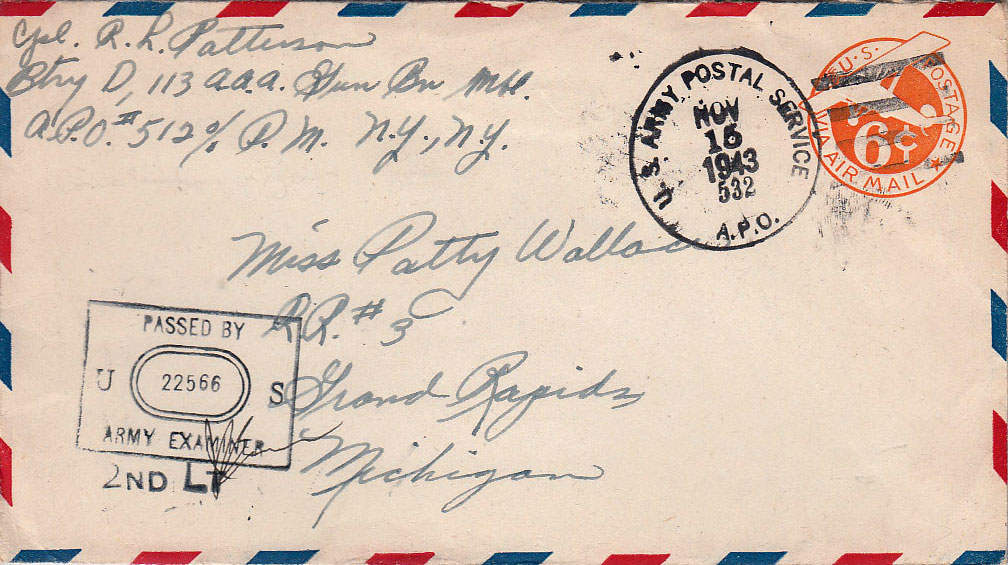 Cpl. R. L. Patterson
Btry D, 113 A.A.A. Gun Bn Mbl.
A.P.O. #512 c/o P.M. N.Y., N.Y.
U.S. ARMY POSTAL SERVICE
NOV
15
1943
532
A.P.O.
U.S. POSTAGE
6¢
VIA AIR MAIL
Miss Patty Wallace
R.R. #3
Grand Rapids
Michigan
PASSED BY
U 22566 S
ARMY EXAMINER
2ND LT